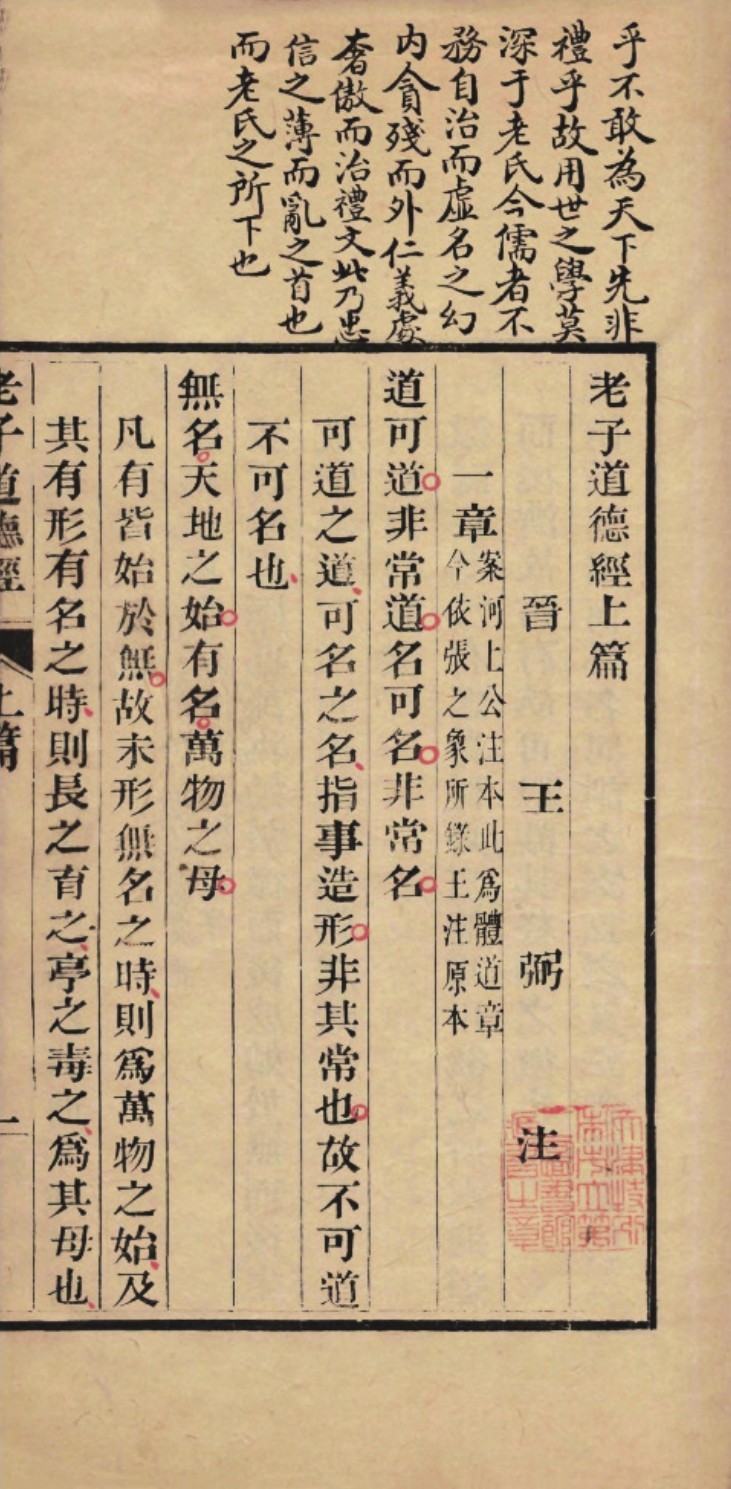 乎不敢為天下先非
禮乎故用世之學莫
深于老氏今儒者不
務自治而虛名之幻
内貪殘而外仁義處
奢傲而治禮文此乃忠
信之薄而亂之首也
而老氏之所下也
老子道德經上篇
晉 王 弼 注
一章 案河上公注本此爲體道章
今依張之象所錄王注原本
道可道非常道名可名非常名
可道之道可名之名指事造形非其常也故不可道
不可名也
無名天地之始有名萬物之母
凡有皆始於無故未形無名之時則爲萬物之始及
其有形有名之時則長之育之亭之毒之爲其母也
老子道德經 上篇 一